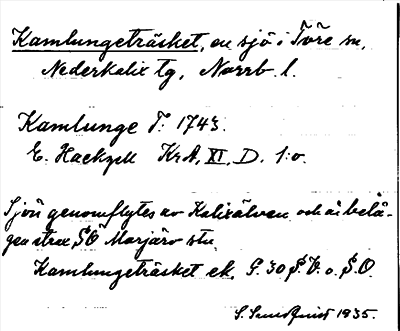 Kamlungeträsket, en sjö i Töre sn,
Nederkalix tg, Norrb. l.
Kamlunge T. 1743.
E. Hackzell KrA, XI, D. 1:o.
Sjön genomflytes av Kalixälven och är belä-
gen strax SÖ Morjärv stn.
Kamlungeträsket ek. G. 30 S.V. o. S.O.
S. Sundquist 1935.